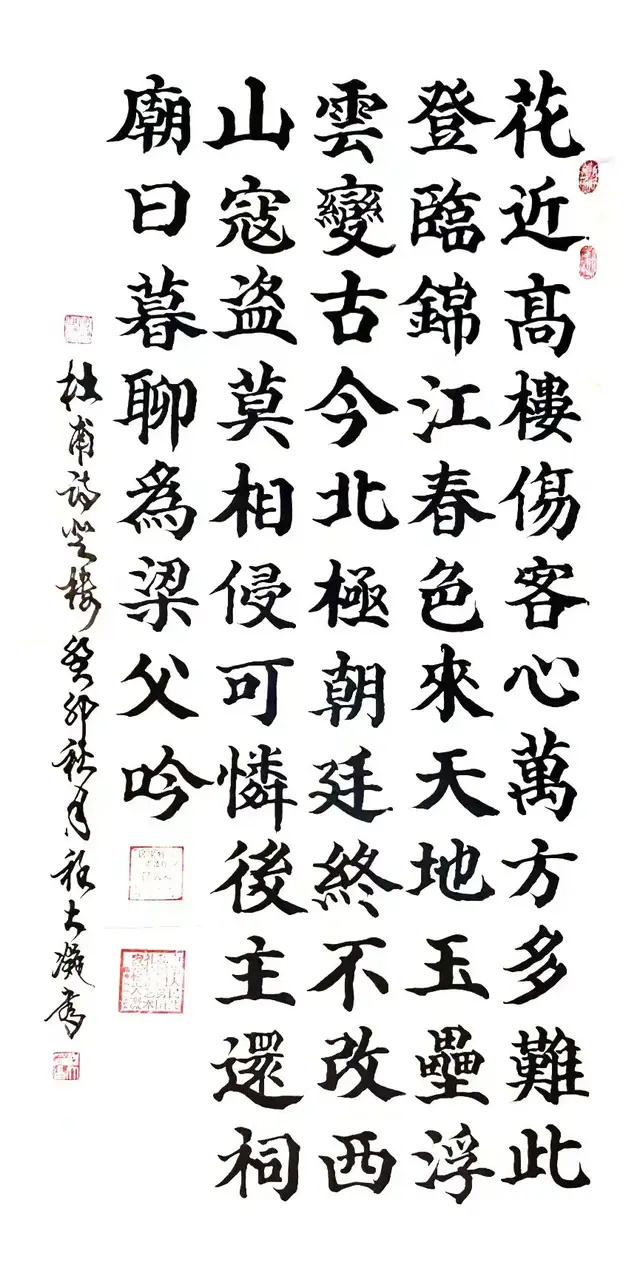 花近髙樓傷客心萬方多難此
登臨錦江春色來天地玉壘浮
雲變古今北極朝廷終不改西
山寇盗莫相侵可憐後主還祠
廟日暮聊為梁父吟
杜甫詩登樓癸卯秋月大凝書